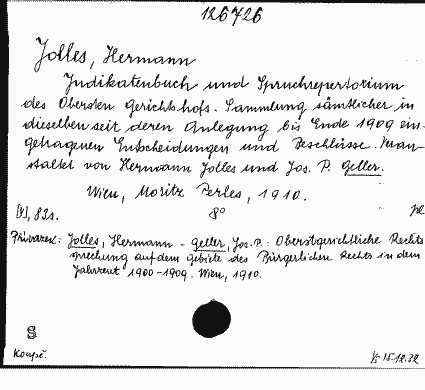 126726
Jolles, Hermann
Judikatenbuch und Spruchrepertorium
des Obersten Gerichtshofs. Sammlung sämtlicher in
dieselben seit deren Anlegung bis Ende 1909 ein-
getragenen Entscheidungen und Beschlüsse. Veran-
staltet von Hermann Jolles und Jos. P. Geller.
Wien, Moritz Perles, 1910.
82s. 8°
Přivázek: Jolles, Hermann - Geller, Jos. P.: Oberstgerichtliche Rechts
sprechung auf dem Gebiete des Bürgerlichen Rechts in dem
Jahrzent 1900-1909. Wien, 1910.
S
Koupě. 15.12.22